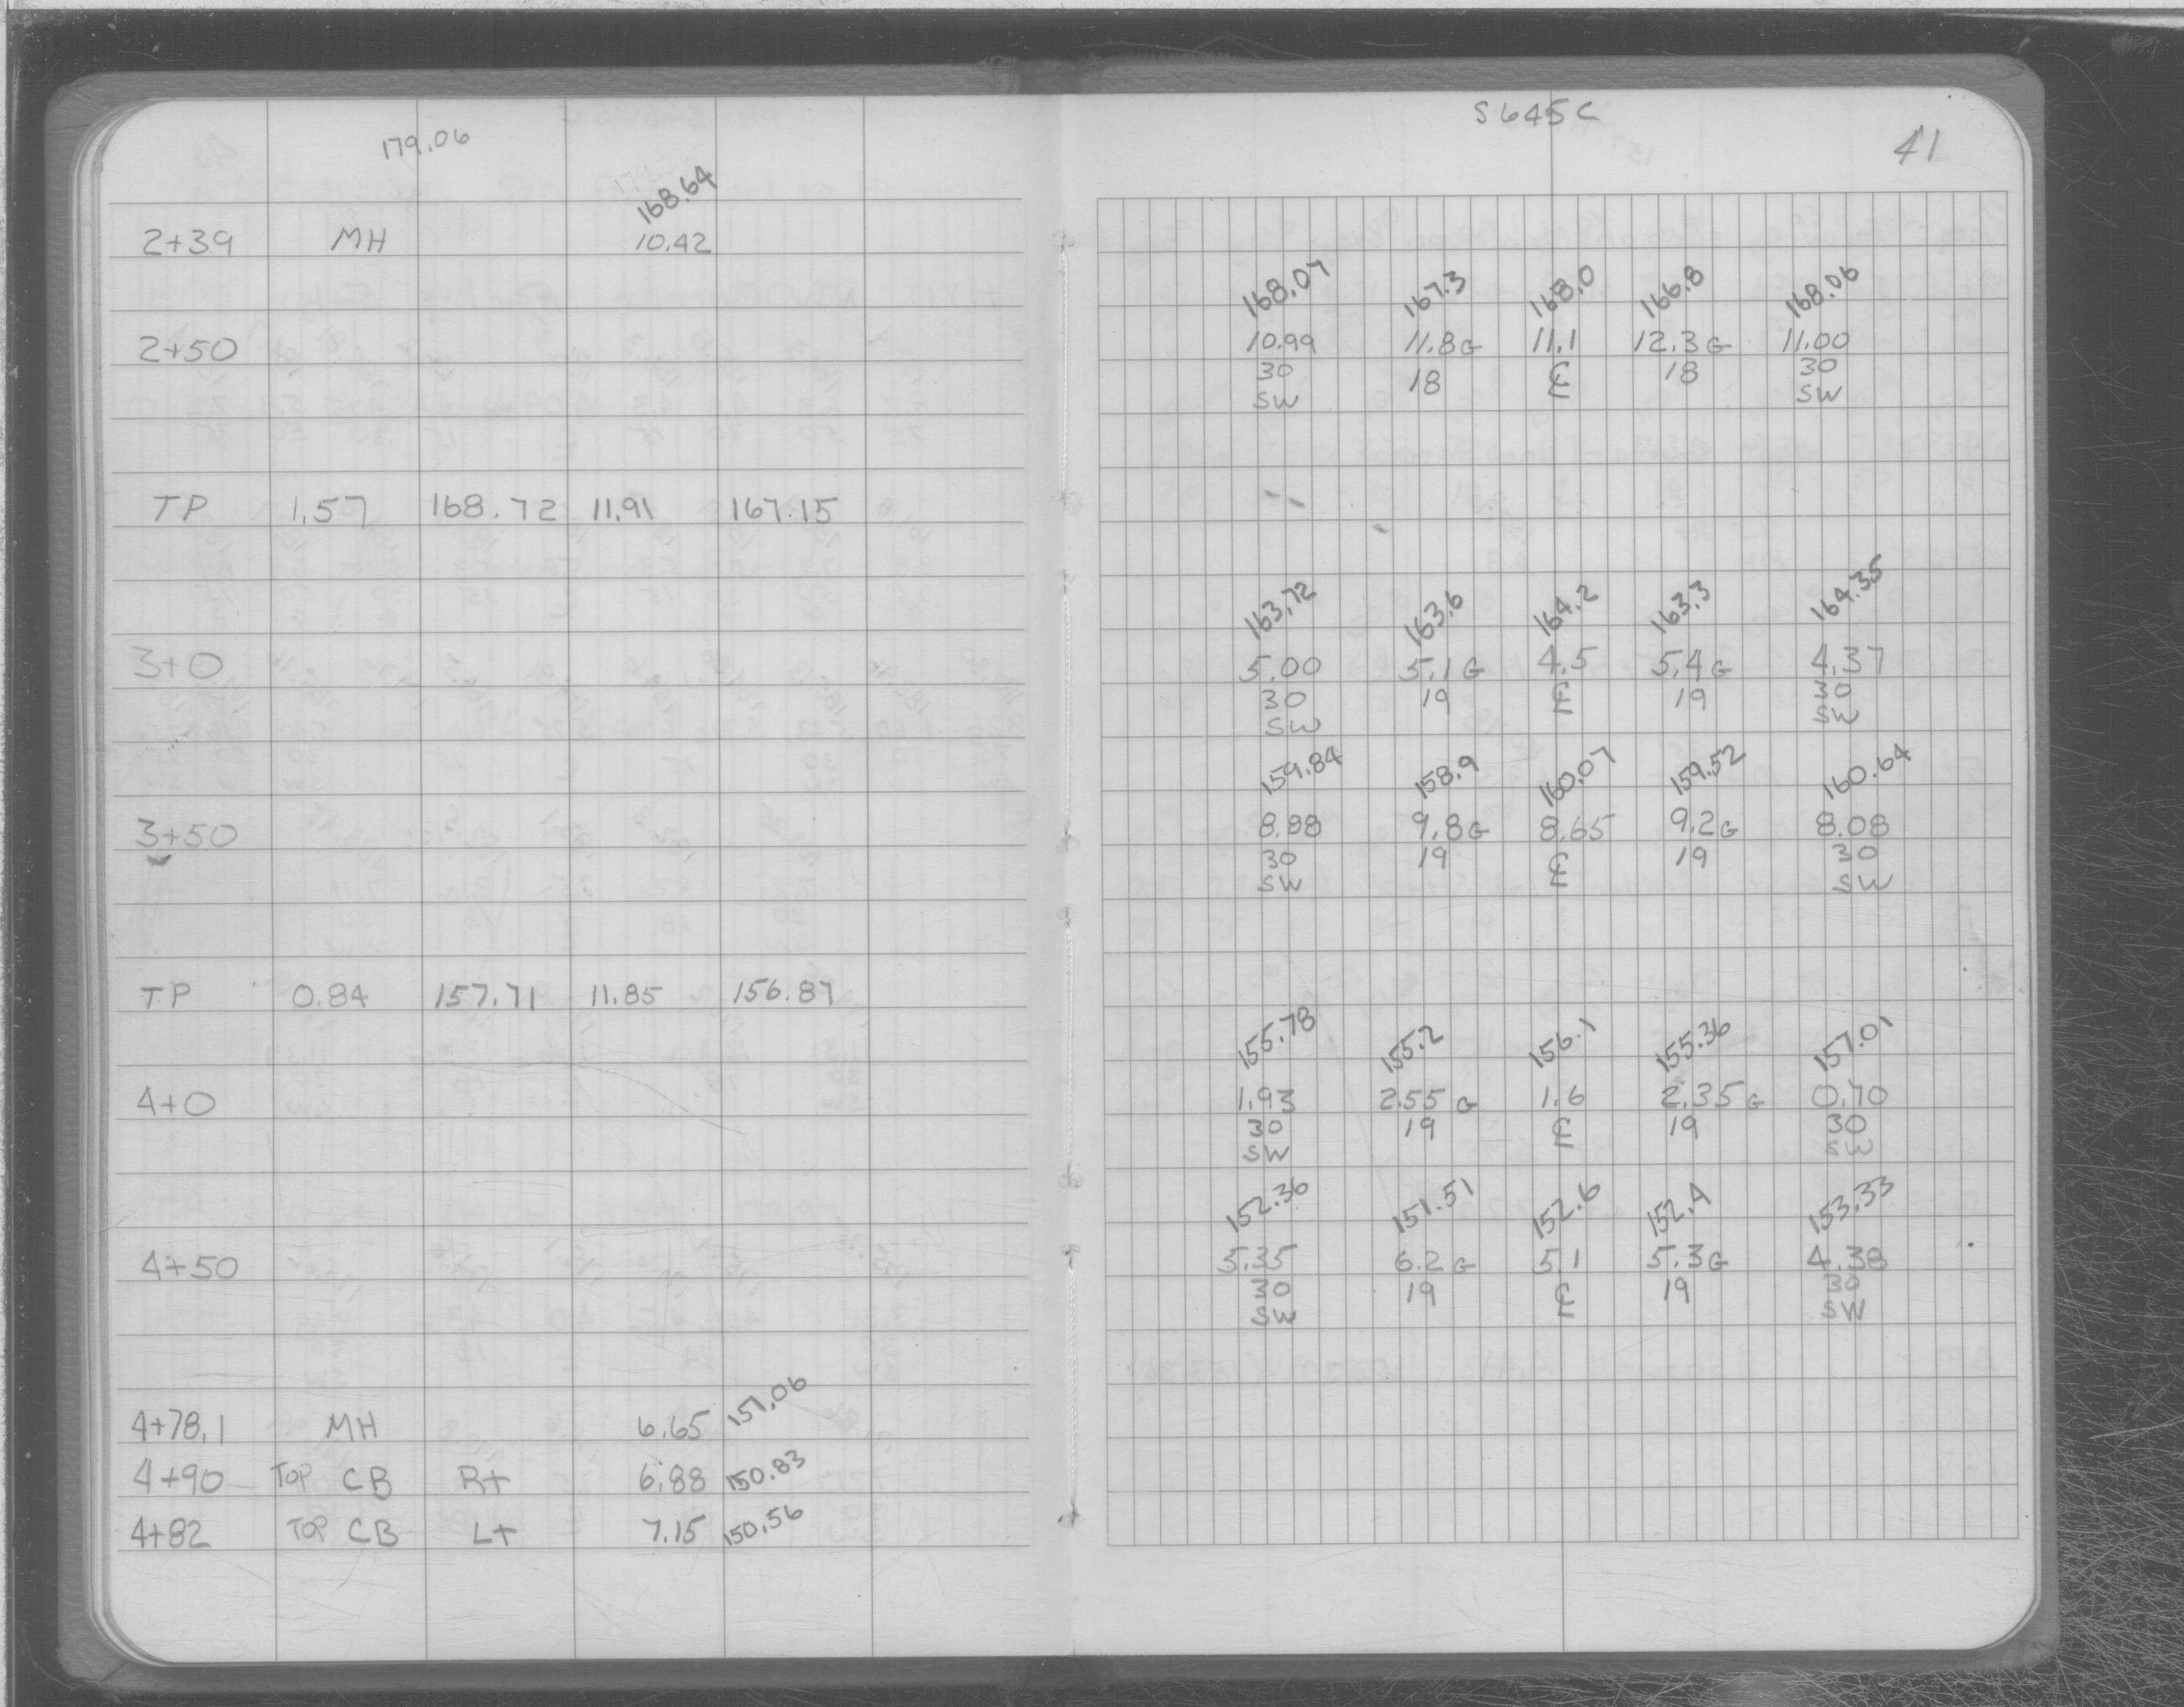 179.06
168.64
2+39 MH 10.42
2+50
TP 1.57 168.72 11.91 167.15
3+0
3+50
TP 0.84 157.71 11.85 156.87
4+0
4+50
4+78.1 MH 6.65 151.06
4+90 TOP CB Rt 6.88 150.83
4+82 TOP CB Lt 7.15 150.56
S645C
41
168.07 167.3 168.0 166.8 168.06
10.99 11.8G 11.1 12.3G 11.00
30 18 ℄ 18 30
SW SW
163.72 163.6 164.2 163.3 164.35
5.00 5.1G 4.5 5.4G 4.37
30 19 ℄ 19 30
SW SW
159.84 158.9 160.07 159.52 160.64
8.88 9.8G 8.65 9.2G 8.08
30 19 ℄ 19 30
SW SW
155.78 155.2 156.1 155.36 157.01
1.93 2.55G 1.6 2.35G 0.70
30 19 ℄ 19 30
SW SW
152.36 151.51 152.6 152.4 153.33
5.35 6.2G 5.1 5.3G 4.38
30 19 ℄ 19 30
SW SW